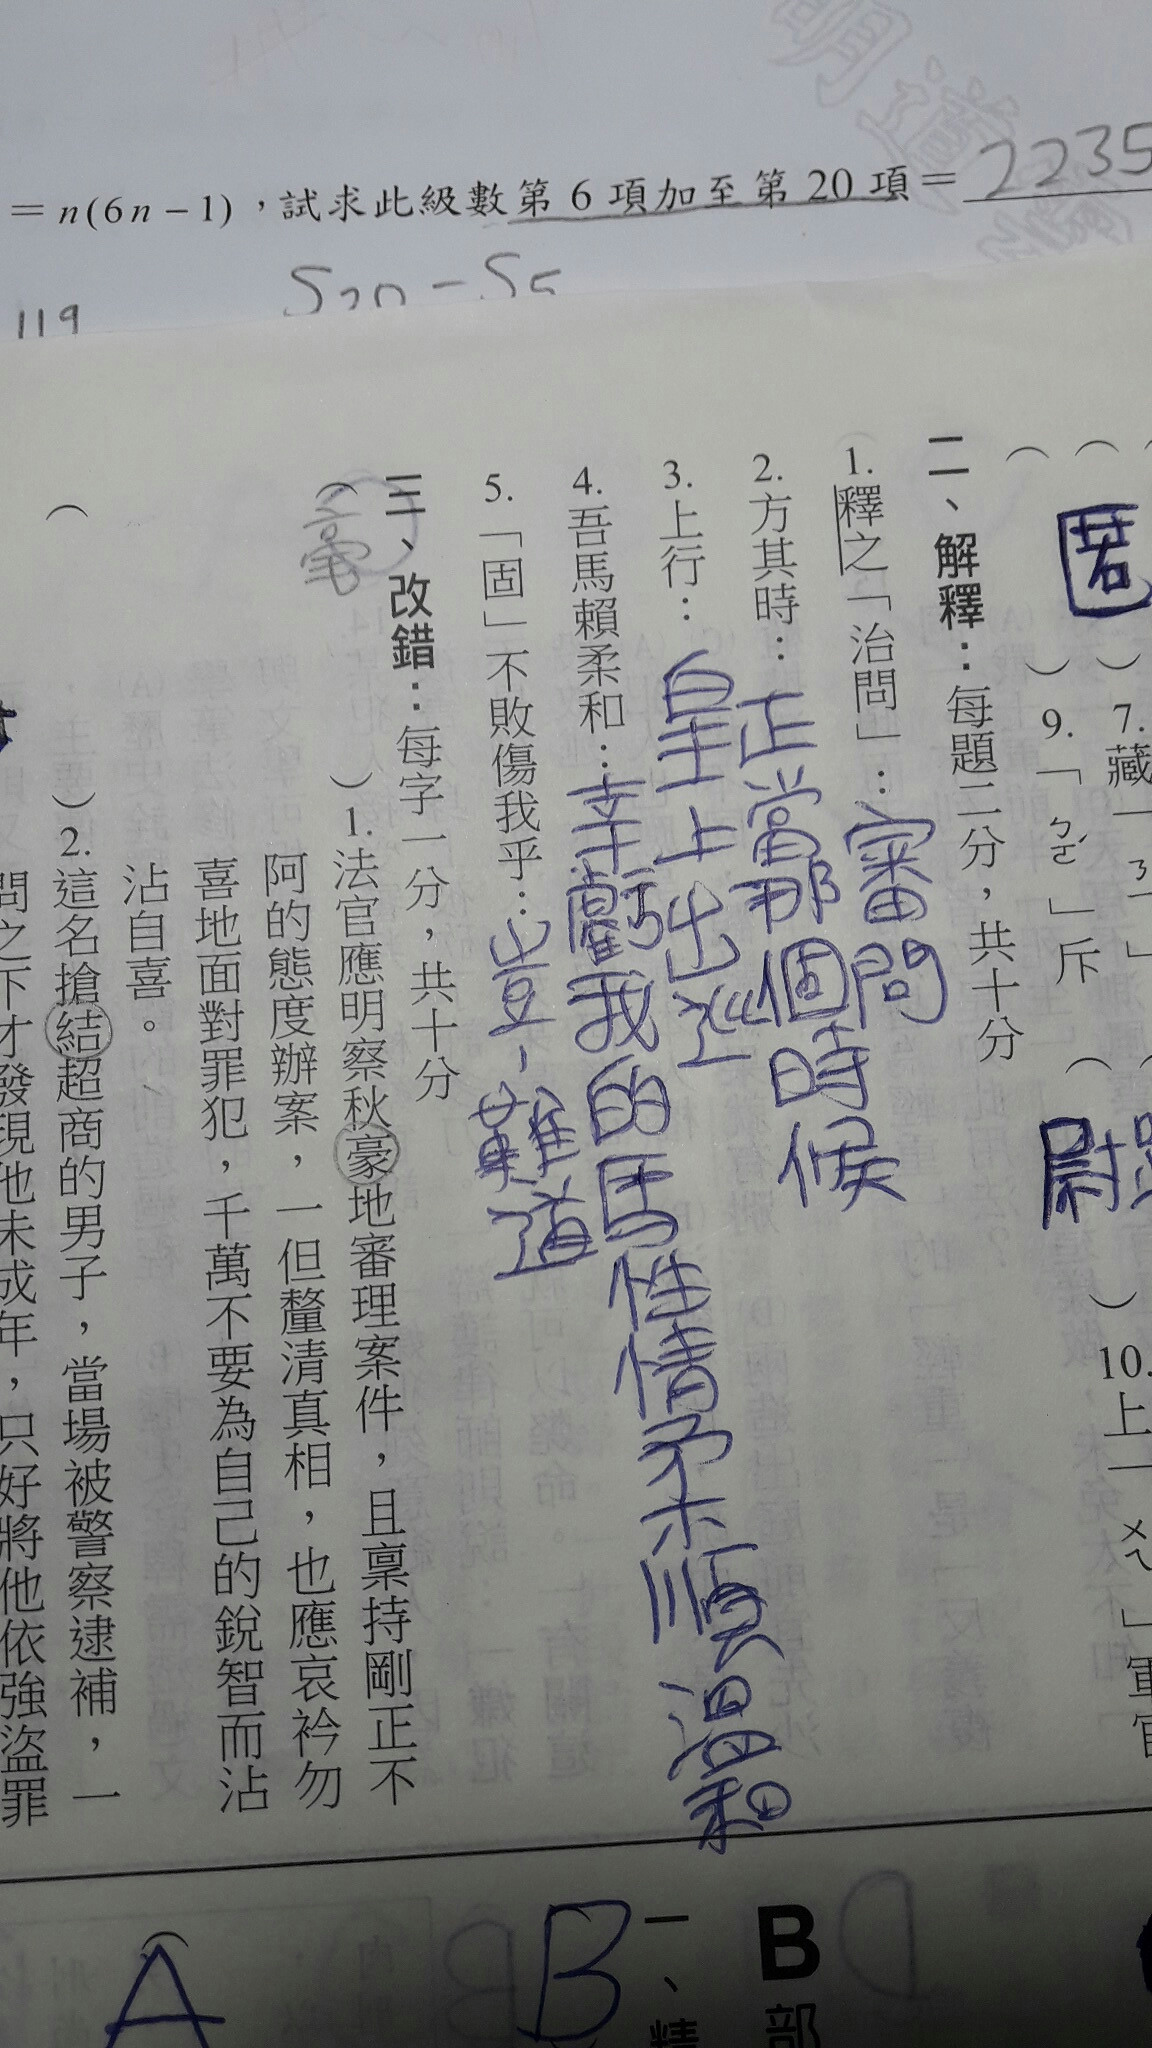 明道
= n(6n－1)，試求此級數第 6 項加至第 20 項＝ 2235
S20－S5
119
7. 藏「
匿
9.「ㄔˋ」斥
10. 上「ㄨㄟˋ」軍官
尉
二、解釋：每題二分，共十分
1. 釋之「治問」：審問
2. 方其時：正當那個時候
3. 上行：皇上出巡
4. 吾馬賴柔和：幸虧我的馬性情柔順溫和
5.「固」不敗傷我乎：豈、難道
三、改錯：每字一分，共十分
（毫）1. 法官應明察秋豪地審理案件，且稟持剛正不
阿的態度辦案，一但釐清真相，也應哀衿勿
喜地面對罪犯，千萬不要為自己的銳智而沾
沾自喜。
（ ）2. 這名搶結超商的男子，當場被警察逮補，一
問之下才發現他未成年，只好將他依強盜罪
B 部
一、精
B
A